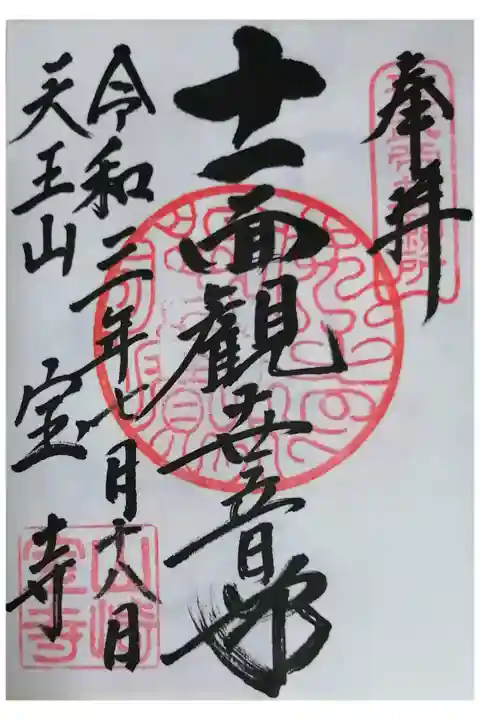 奉拝
十一面観世音
令和二年七月十八日
天王山 宝寺
山崎
宝寺